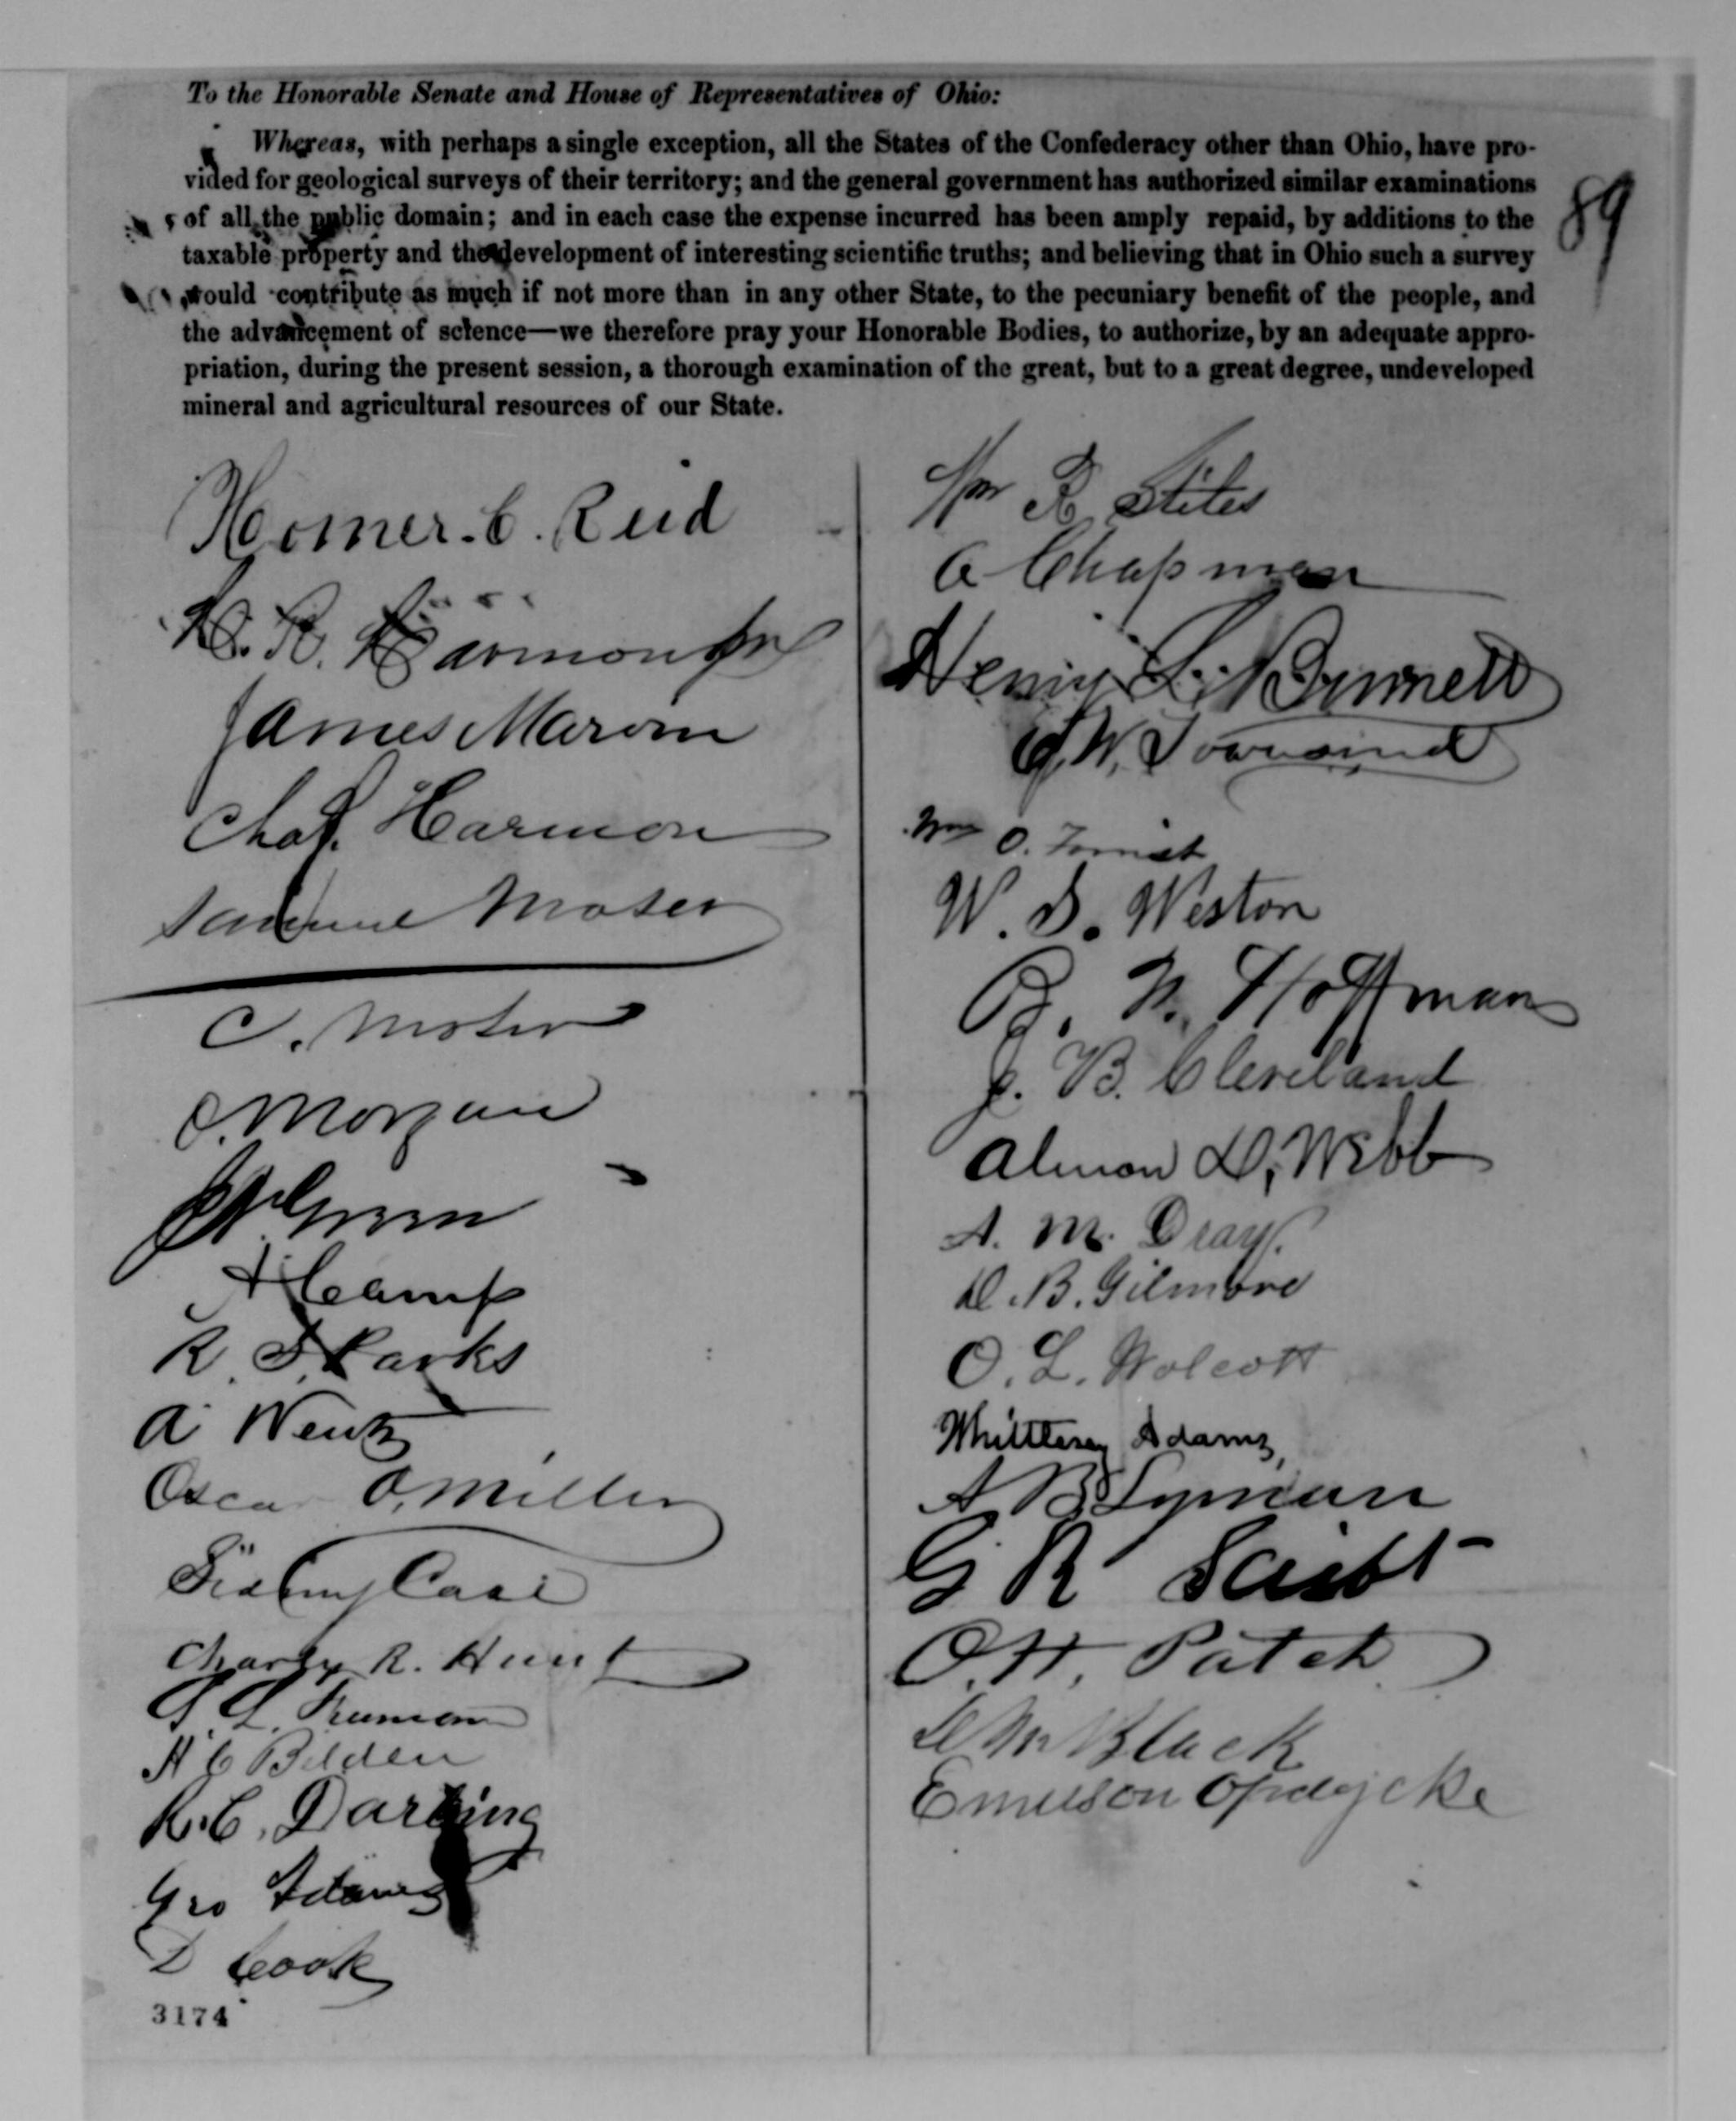 To the Honorable Senate and House of Representatives of Ohio:
Whereas, with perhaps a single exception, all the States of the Confederacy other than Ohio, have pro-
vided for geological surveys of their territory; and the general government has authorized similar examinations
of all the public domain; and in each case the expense incurred has been amply repaid, by additions to the
taxable property and the development of interesting scientific truths; and believing that in Ohio such a survey
would contribute as much if not more than in any other State, to the pecuniary benefit of the people, and
the advancement of science—we therefore pray your Honorable Bodies, to authorize, by an adequate appro-
priation, during the present session, a thorough examination of the great, but to a great degree, undeveloped
mineral and agricultural resources of our State.
89
Homer. C. Reid
R. Harmon
James Marvin
Chas. Harmon
Samuel Moser
C. Moser
O. Morgan
Green
Camp
R. S. Parks
A Wentz
Oscar O. Miller
Sidney Case
Charles R. Hunt
L.
H C Belden
R. C. Darling
Geo Adams
D Cook
3174
Wm R Stiles
A Chapman
Henry L. Burnett
W. Townsend
Wm O. Forrist
W. S. Weston
B. N. Hoffman
J. B. Cleveland
Almon D. Webb
A. M. Gray.
D. B. Gilmore
O. L. Wolcott
Whittlesey Adams,
A B Lyman
G R
O. H. Patch
Black
Emerson Opdycke